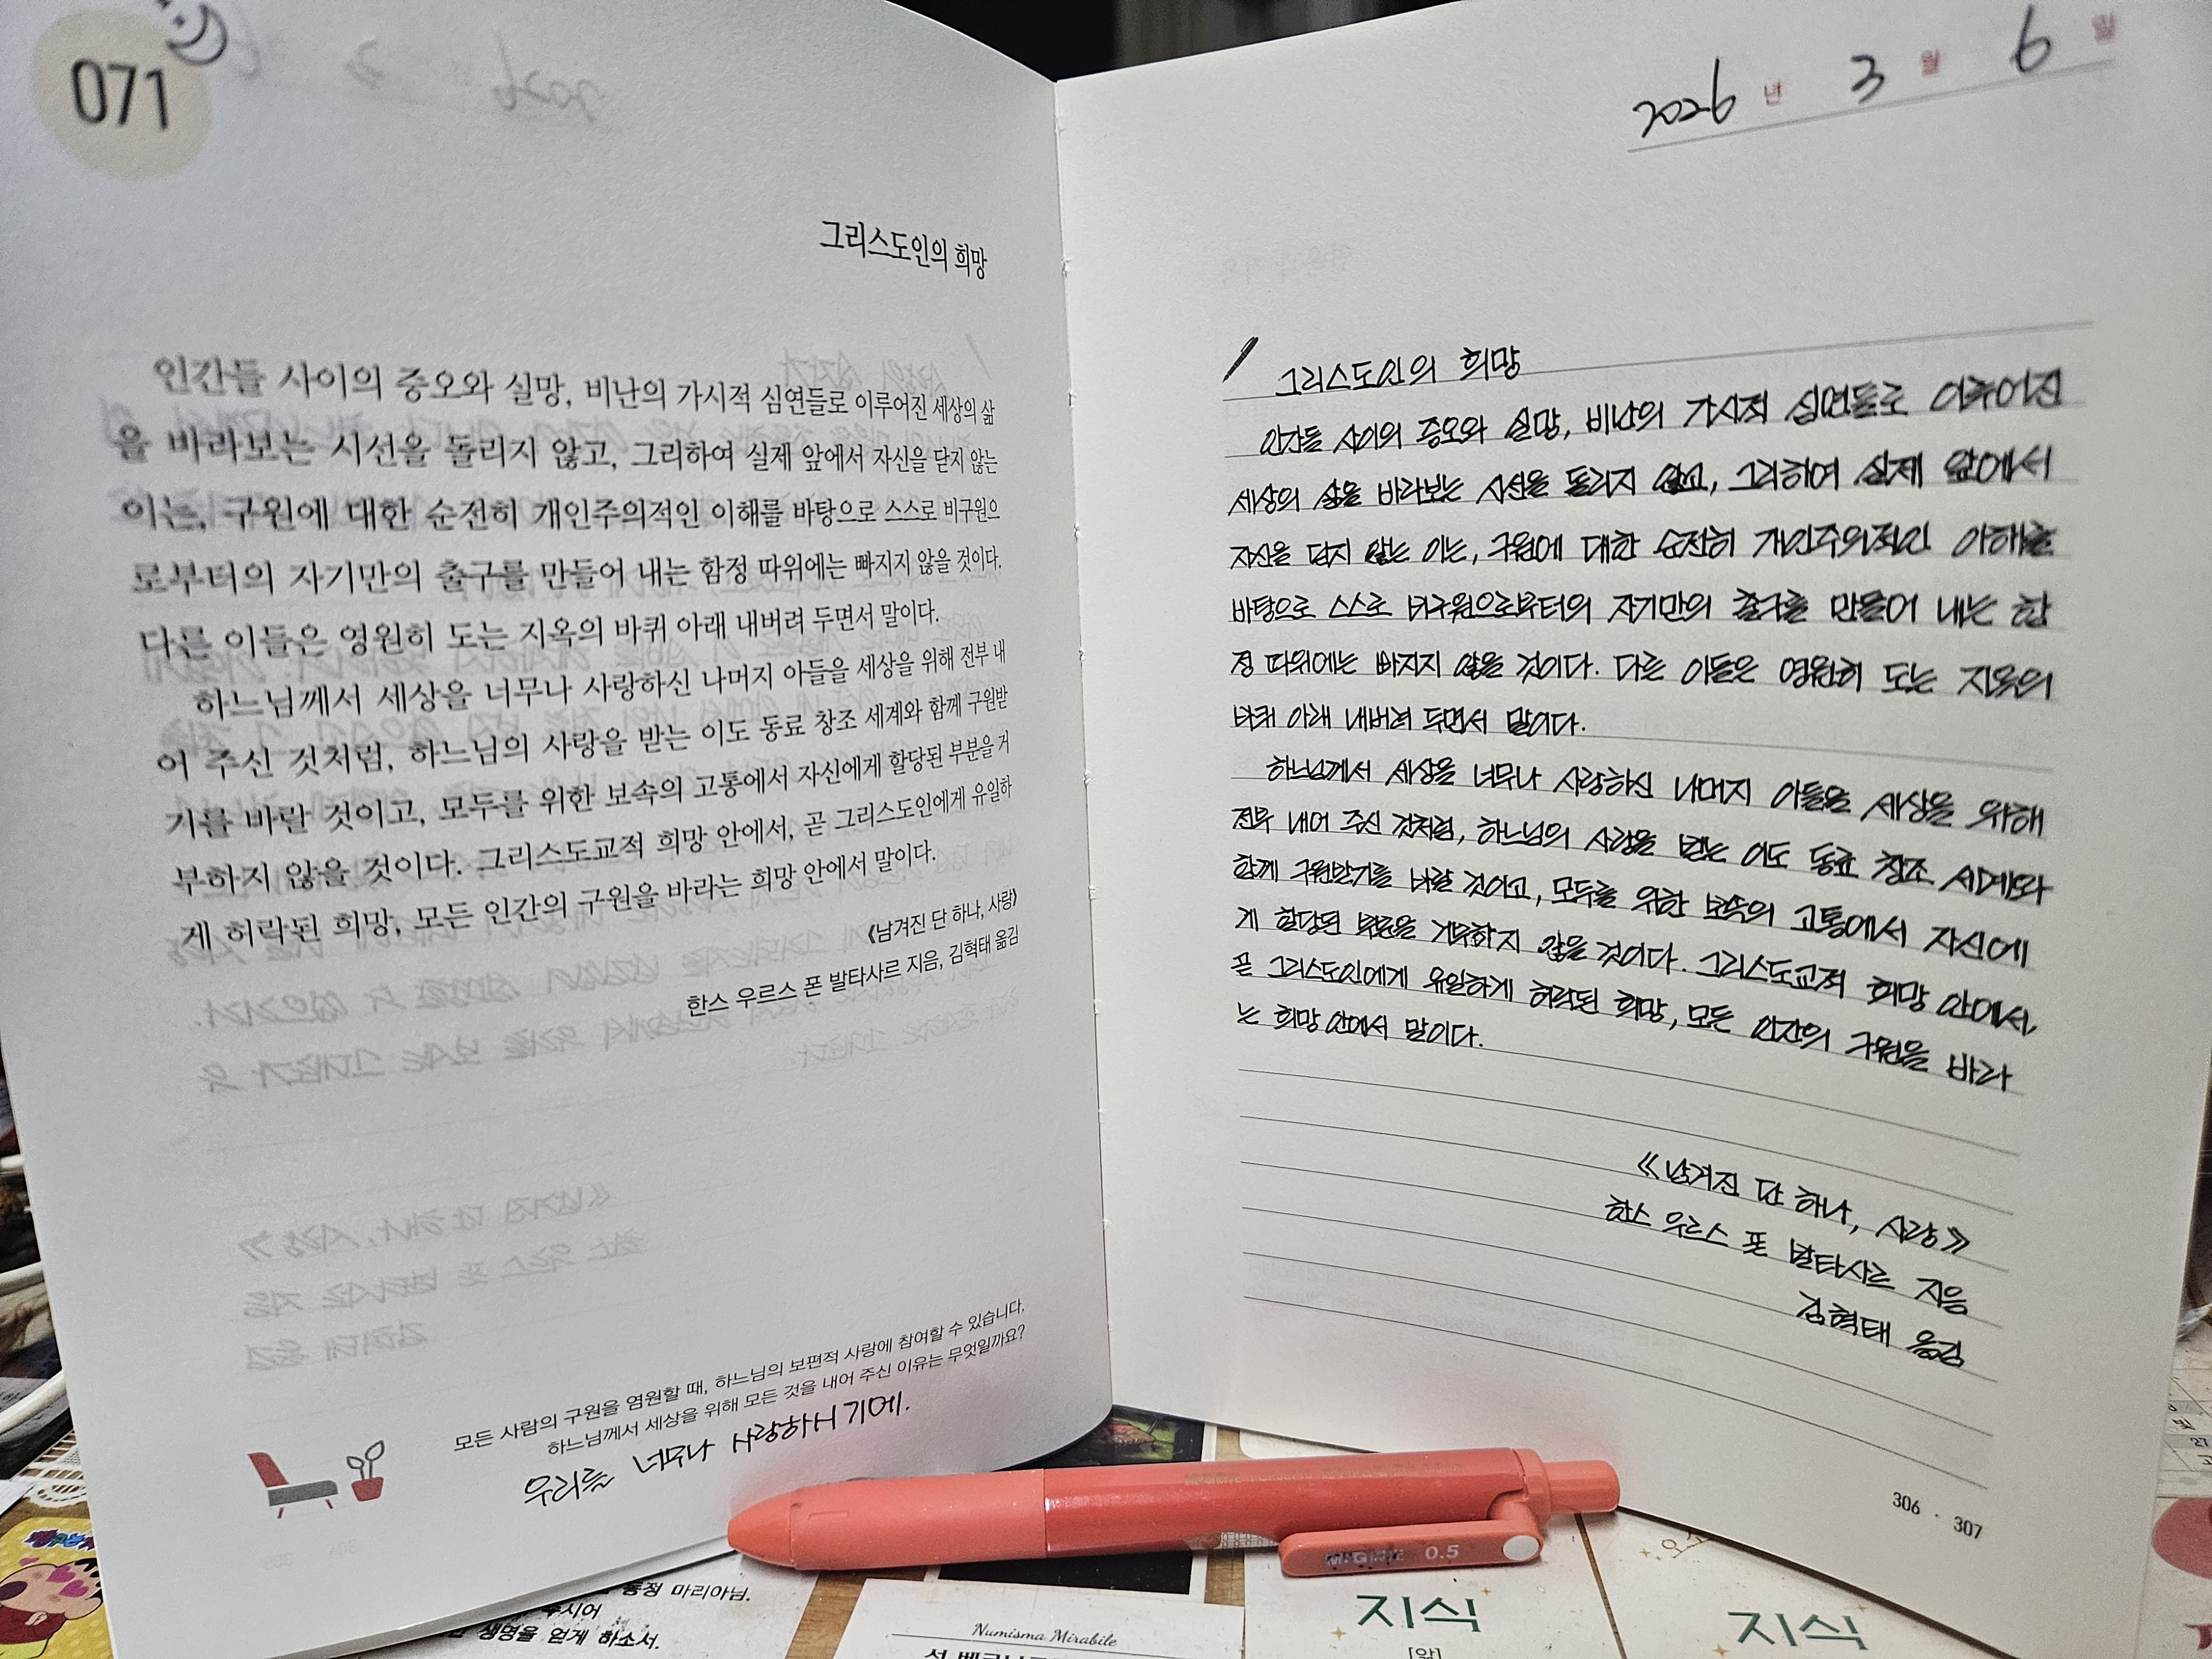 071
그리스도인의 희망
인간들 사이의 증오와 실망, 비난의 가시적 심연들로 이루어진 세상의 삶
을 바라보는 시선을 돌리지 않고, 그리하여 실제 앞에서 자신을 닫지 않는
이는, 구원에 대한 순전히 개인주의적인 이해를 바탕으로 스스로 비구원으
로부터의 자기만의 출구를 만들어 내는 함정 따위에는 빠지지 않을 것이다.
다른 이들은 영원히 도는 지옥의 바퀴 아래 내버려 두면서 말이다.
하느님께서 세상을 너무나 사랑하신 나머지 아들을 세상을 위해 전부 내
어 주신 것처럼, 하느님의 사랑을 받는 이도 동료 창조 세계와 함께 구원받
기를 바랄 것이고, 모두를 위한 보속의 고통에서 자신에게 할당된 부분을 거
부하지 않을 것이다. 그리스도교적 희망 안에서, 곧 그리스도인에게 유일하
게 허락된 희망, 모든 인간의 구원을 바라는 희망 안에서 말이다.
《남겨진 단 하나, 사랑》
한스 우르스 폰 발타사르 지음, 김혁태 옮김
모든 사람의 구원을 염원할 때, 하느님의 보편적 사랑에 참여할 수 있습니다.
하느님께서 세상을 위해 모든 것을 내어 주신 이유는 무엇일까요?
우리를 너무나 사랑하시기에.
2026년 3월 6일
그리스도인의 희망
인간들 사이의 증오와 실망, 비난의 가시적 심연들로 이루어진
세상의 삶을 바라보는 시선을 돌리지 않고, 그리하여 실제 앞에서
자신을 닫지 않는 이는, 구원에 대한 순전히 개인주의적인 이해를
바탕으로 스스로 비구원으로부터의 자기만의 출구를 만들어 내는 함
정 따위에는 빠지지 않을 것이다. 다른 이들은 영원히 도는 지옥의
바퀴 아래 내버려 두면서 말이다.
하느님께서 세상을 너무나 사랑하신 나머지 아들을 세상을 위해
전부 내어 주신 것처럼, 하느님의 사랑을 받는 이도 동료 창조 세계와
함께 구원받기를 바랄 것이고, 모두를 위한 보속의 고통에서 자신에
게 할당된 부분을 거부하지 않을 것이다. 그리스도교적 희망 안에서,
곧 그리스도인에게 유일하게 허락된 희망, 모든 인간의 구원을 바라
는 희망 안에서 말이다.
《남겨진 단 하나, 사랑》
한스 우르스 폰 발타사르 지음
김혁태 옮김
306 · 307
M&G 0.5
동정 마리아님.
주시어
생명을 얻게 하소서.
Numisma Mirabile
지식
[앞]
지식